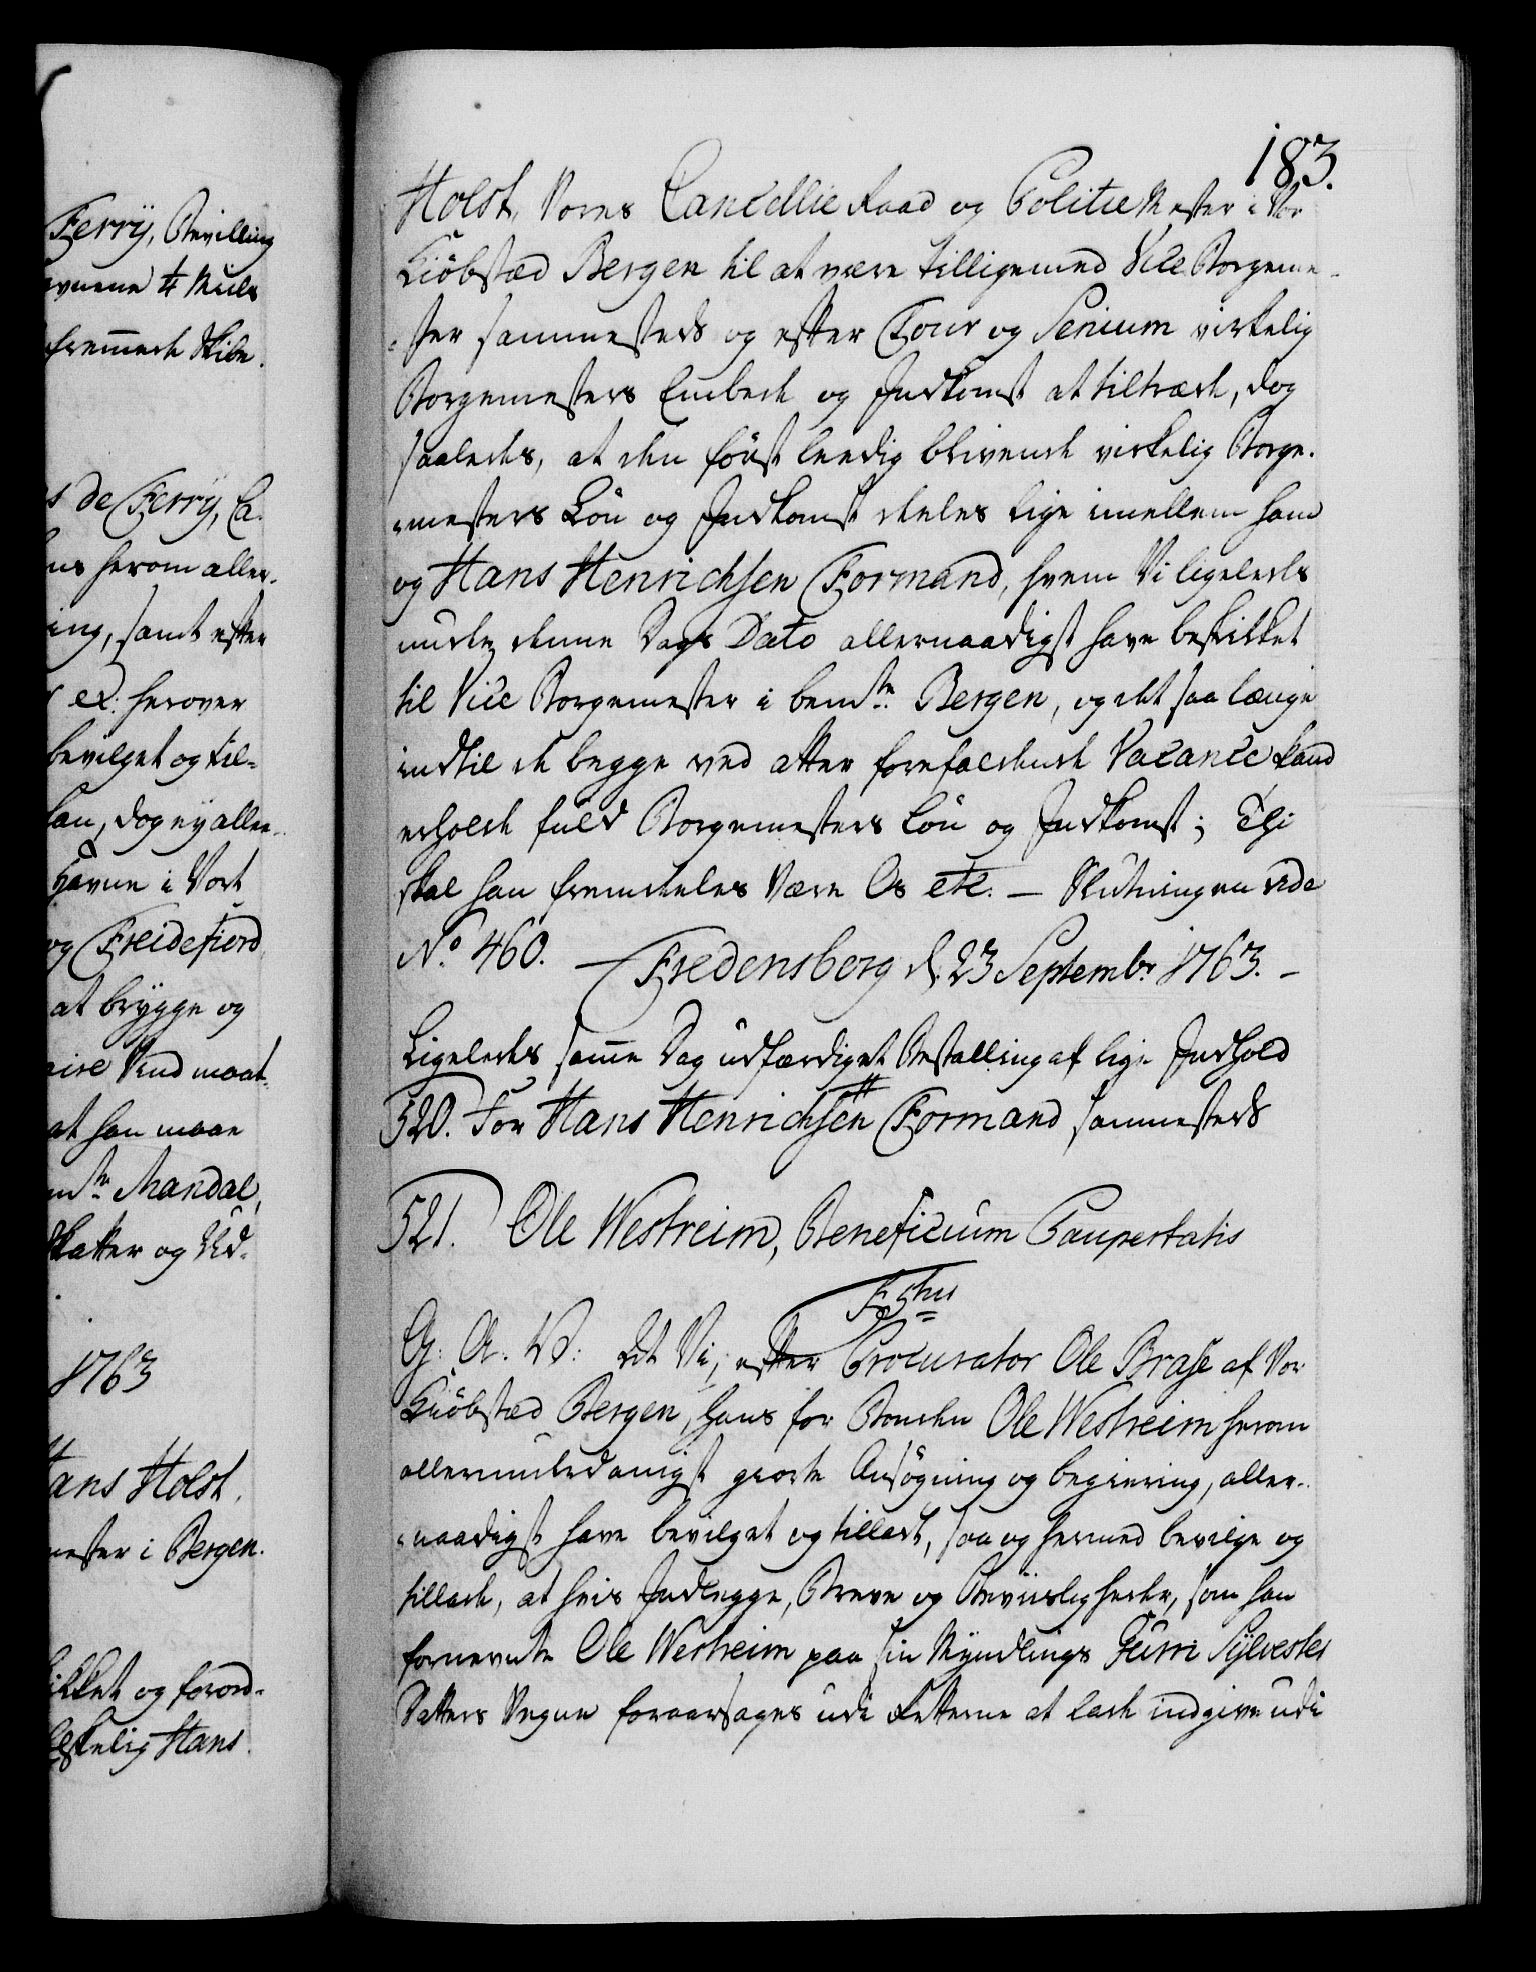 Ferrÿ, Bevilling
fremmede Skibe.
s de Ferrÿ, Ca-
ns herom aller-
ing, samt efter
r ex: herover
bevilget og til-
kan, dog ey aller-
Havne i Vort
og Freidefiord
at brygge og
Vind maat-
at han maae
mte Mandal,
Skatter og Ud-
1763
Hans Holst,
mester i Bergen.
skikket og forord-
Elskelig Hans
183.
Holst, Vores Cancellie Raad og Politie Mester i Vor
Kiöbsted Bergen til at være tilligemed Vice Borgeme-
ster sammesteds og efter Tour og Senium virkelig
Borgemesters Embede og Indkomst at tiltræde, dog
saaledes, at den först leedig blivende virkelig Borge-
mesters Lön og Indkomst deeles lige imellem ham
og Hans Henrichsen Formand, hvem Vi ligeledes
under denne Dags Dato allernaadigst have beskikket
til Vice Borgemester i bemte Bergen, og det saa længe
indtil de begge ved atter forefaldende Vacance kand
erholde fuld Borgemesters Lön og Indkomst; Thi
skal han fremdeeles Være Os etc. — Slutningen vide
No. 460. — Fredensberg d. 23 Septembr 1763. –
Ligeledes samme Dag udfærdiget Bestalling af lige Indhold
520. For Hans Henrichsen Formand sammesteds
521. Ole Westreim, Beneficium Paupertatis
F 5tus
G: A: V: At Vi, efter Procurator Ole Brase af Vor
Kiöbsted Bergen, hans for Bonden Ole Westreim herom
allerunderdanigst giorte Ansögning og begiering, aller-
naadigst have bevilget og tilladt, saa og hermed bevilge og
tillade, at hvis Indlegge, Breve og Beviisligheder, som han
fornevnte Ole Westreim paa sin Myndlings Gurri Sylvester
Datters Vegne foraarsages udi Retterne at lade indgive udi